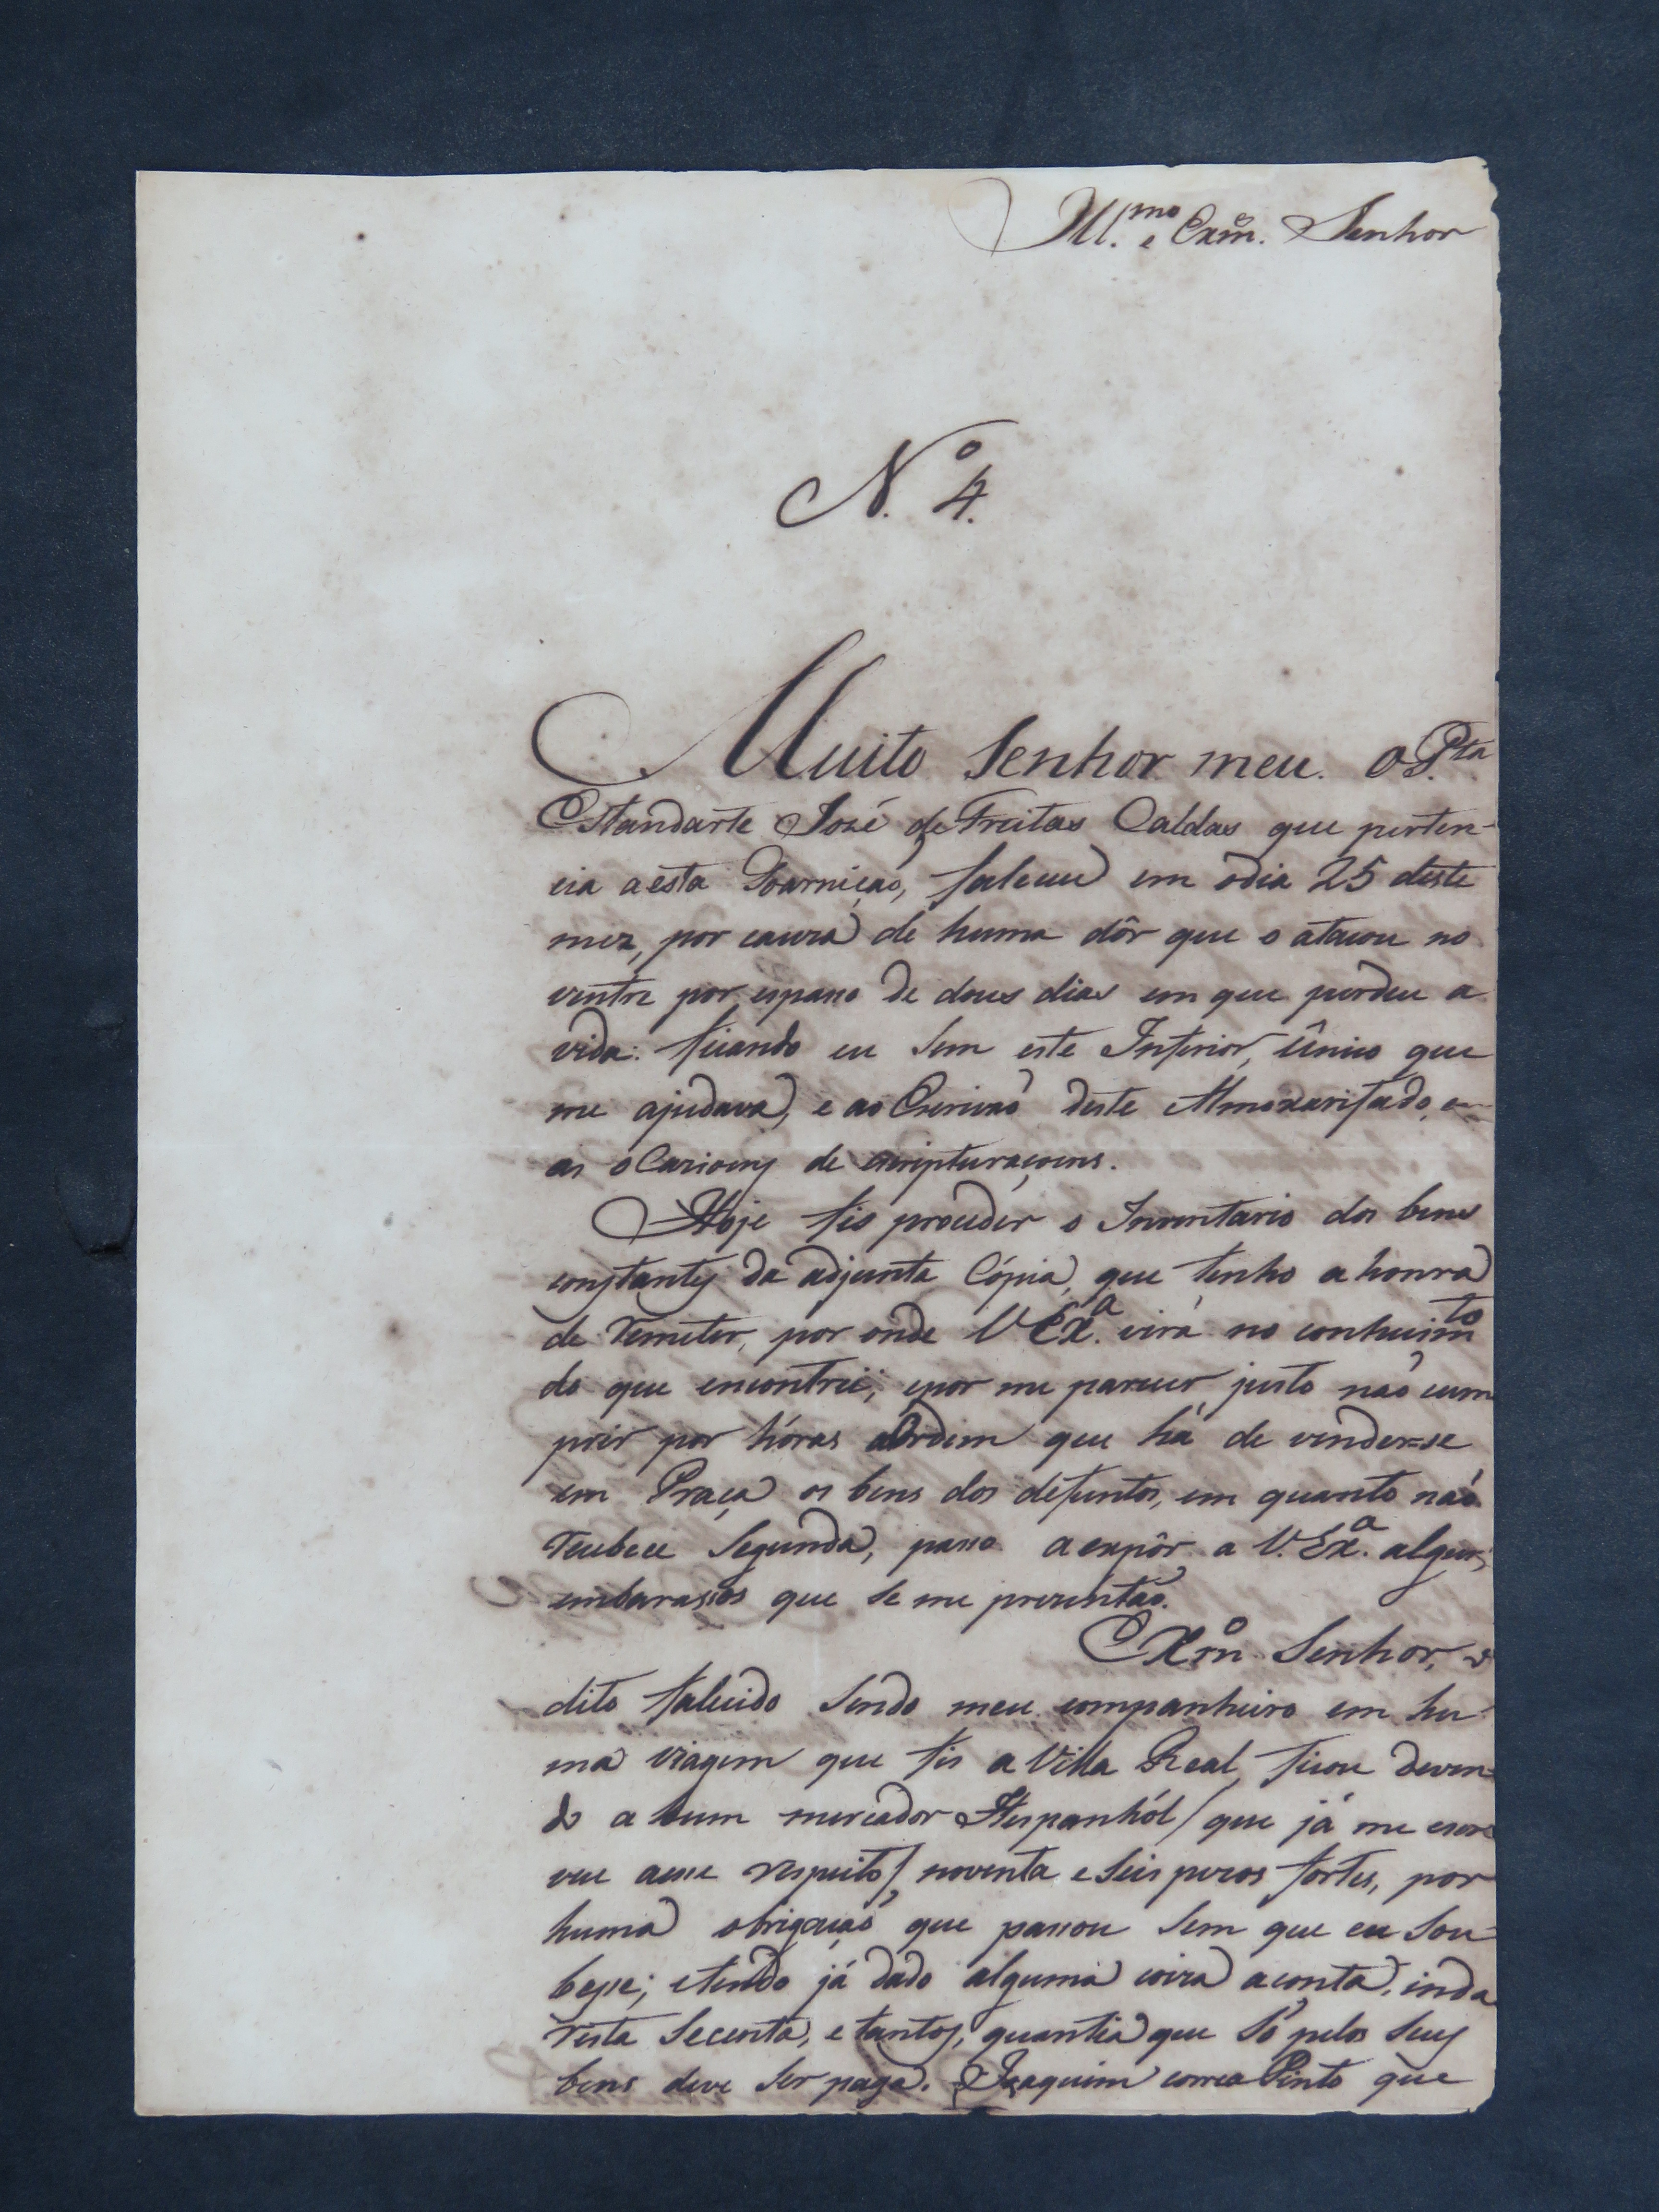 Ill.mo e Exm.o Senhor
N.o 4.
Muito Senhor meu. O P.ta
Estandarte José de Freitas Caldas que perten-
cia aesta Goarnição, faleceu em odia 25 deste
mez, por cauza de huma dôr que o atacou no
ventre por espasso de dous dias em que perdeu a
vida: ficando eu sem este Inferior, único que
me ajudava, e ao Escrivaõ deste Almoxarifado, em
as oCazioens de escripturaçoens.
Hoje fis proceder o Inventario dos bens
constantes da adjunta Cópia, que tenho a honra
de remeter, por onde V Ex.a virá no conhecim.to
do que encontrei; epor me parecer justo naõ cum
prir por hóras aOrdem que há de vender=se
em Praça os bens dos defuntos, em quanto naõ
recebece Segunda, passo aexpôr a V. Ex.a alguns
embarassos que se me prezentaõ.
EXm.o Senhor, o
dito falecido sendo meu companheiro em hu-
ma viagem que fis a Villa Real, ficou deven-
do a hum mercador Hespanhól / que já me escre
veu aesse respeito /, noventa e Seis pezos fortes, por
huma obrigaçaõ que passou Sem que eu Sou-
besse; etendo já dado alguma coiza aconta, inda
resta Secenta, e tantos, quantia que Só pelos Seus
bens deve Ser paga. Joaquim correa Pinto que